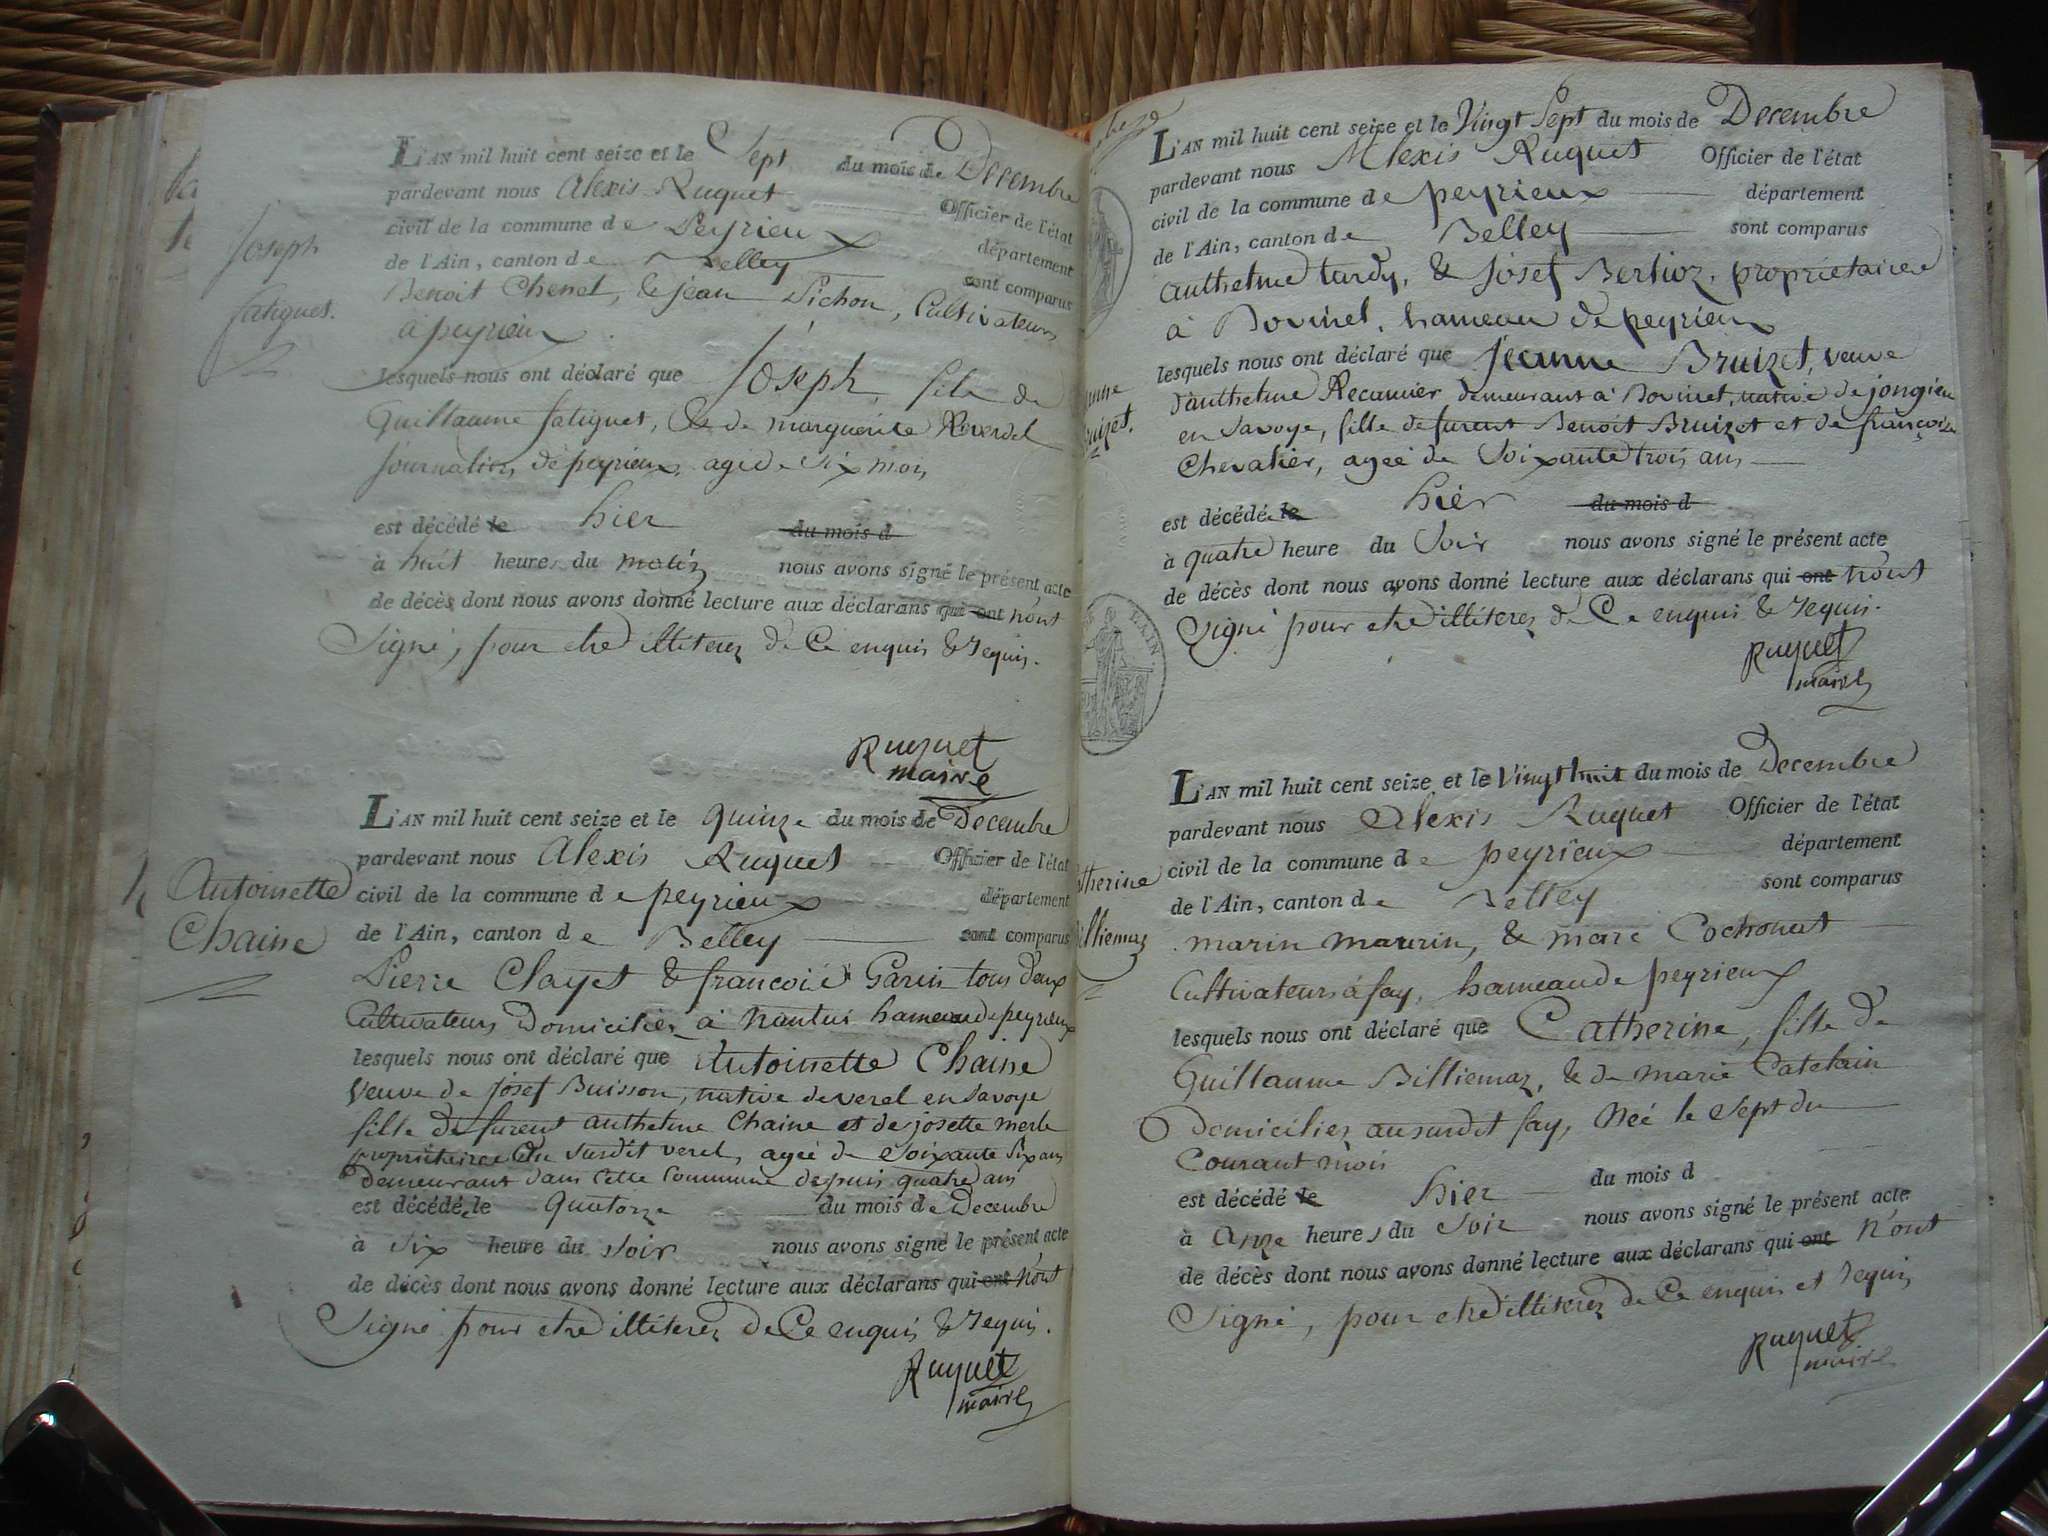 Joseph
fatiguet.
L'AN mil huit cent seize et le Sept du mois de Decembre
pardevant nous Alexis Ruquet Officier de l'état
civil de la commune de Peyrieux département
de l'Ain, canton de Belley sont comparus
Benoit Chenet, & jean Pichon, Cultivateurs
à peyrieux
lesquels nous ont déclaré que Joseph, fils de
Guillaume fatiguet, & de marguerite Reverdel
journaliers, de peyrieux, agé de Six mois
est décédé le hier du mois d
à huit heures du matin nous avons signé le présent acte
de décès dont nous avons donné lecture aux déclarans qui ont n'ont
Signé, pour etre illiterez de Ce enquis & requis.
Ruquet
maire
Antoinette
Chaine
L'AN mil huit cent seize et le quinze du mois de Decembre
pardevant nous Alexis Ruquet Officier de l'état
civil de la commune de peyrieux département
de l'Ain, canton de Belley sont comparus
Pierre Clayet & francois Garin tous deux
Cultivateurs Domiciliés à Nantui hameau de peyrieux
lesquels nous ont déclaré que Antoinette Chaine
veuve de Josef Buisson, native de verel en Savoye
fille de furent anthelme Chaine et de josette merle
propriétaires du Susdit verel, agée de Soixante Six ans
demeurant dans Cette Commune depuis quatre ans
est décédé le quatorze du mois de Decembre
à Six heure du soir nous avons signé le présent acte
de décès dont nous avons donné lecture aux déclarans qui ont n'ont
Signé pour etre illiterez de Ce enquis & requis.
Ruquet
maire
L'AN mil huit cent seize et le Vingt Sept du mois de Decembre
pardevant nous Alexis Ruquet Officier de l'état
civil de la commune de peyrieux département
de l'Ain, canton de Belley sont comparus
anthelme tardy, & josef Berlioz, propriétaires
à Bovinel, hameau de peyrieux
lesquels nous ont déclaré que Jeanne Bruizet, veuve
d'anthelme Recamier demeurant à Bovinel, native de jongieu
en Savoye, fille de furent Benoit Bruizet et de françoise
Chevalier, agée de Soixante trois ans
est décédé le hier du mois d
à quatre heure du Soir nous avons signé le présent acte
de décès dont nous avons donné lecture aux déclarans qui ont n'ont
Signé pour etre illiterez de Ce enquis & requis.
Ruquet
maire
L'AIN.
L'AN mil huit cent seize et le Vingt huit du mois de Decembre
pardevant nous Alexis Ruquet Officier de l'état
civil de la commune de peyrieux département
de l'Ain, canton de Belley sont comparus
marin maurin, & marc Cochonat
Cultivateurs à fay, hameau de peyrieux
lesquels nous ont déclaré que Catherine, fille de
Guillaume Billiemaz, & de marie Catelain
Domiciliez au susdit fay, Neé le Sept du
Courant mois
est décédé le hier du mois d
à onze heures du Soir nous avons signé le présent acte
de décès dont nous avons donné lecture aux déclarans qui ont n'ont
Signé, pour etre illiterez de Ce enquis et requis
Ruquet
maire